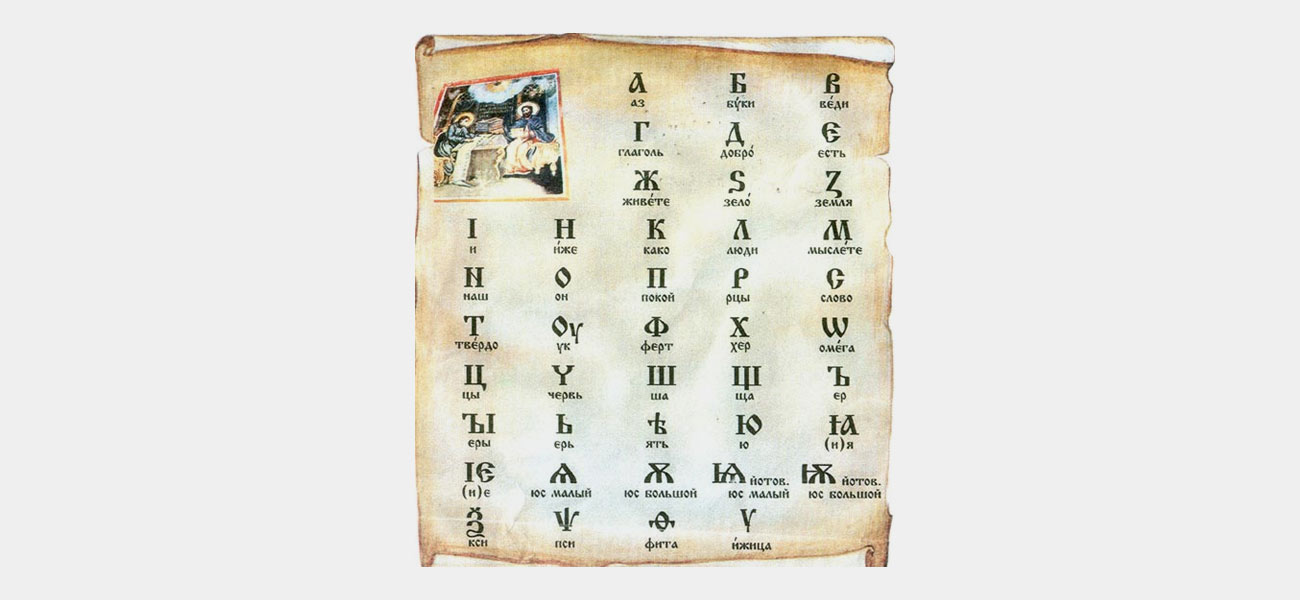 А Б В
аз бу́ки ве́ди
Г Д Є
глаголь добро́ єсть
Ж Ѕ З
живе́те зело́ земля
І Н К Л М
и и́же како люди мысле́те
N О П Р С
наш он покой рцы слово
Т Оу Ф Х Ѡ
тве́рдо ук ферт хер оме́га
Ц Ч Ш Щ Ъ
цы червь ша ща ер
ЪІ Ь Ѣ Ю Ꙗ
еры ерь ять ю (и)я
Ѥ Ѧ Ѫ Ѩ йотов. Ѭ йотов.
(и)е юс малый юс большой юс малый юс большой
Ѯ Ѱ Ѳ Ѵ
кси пси фита и́жица